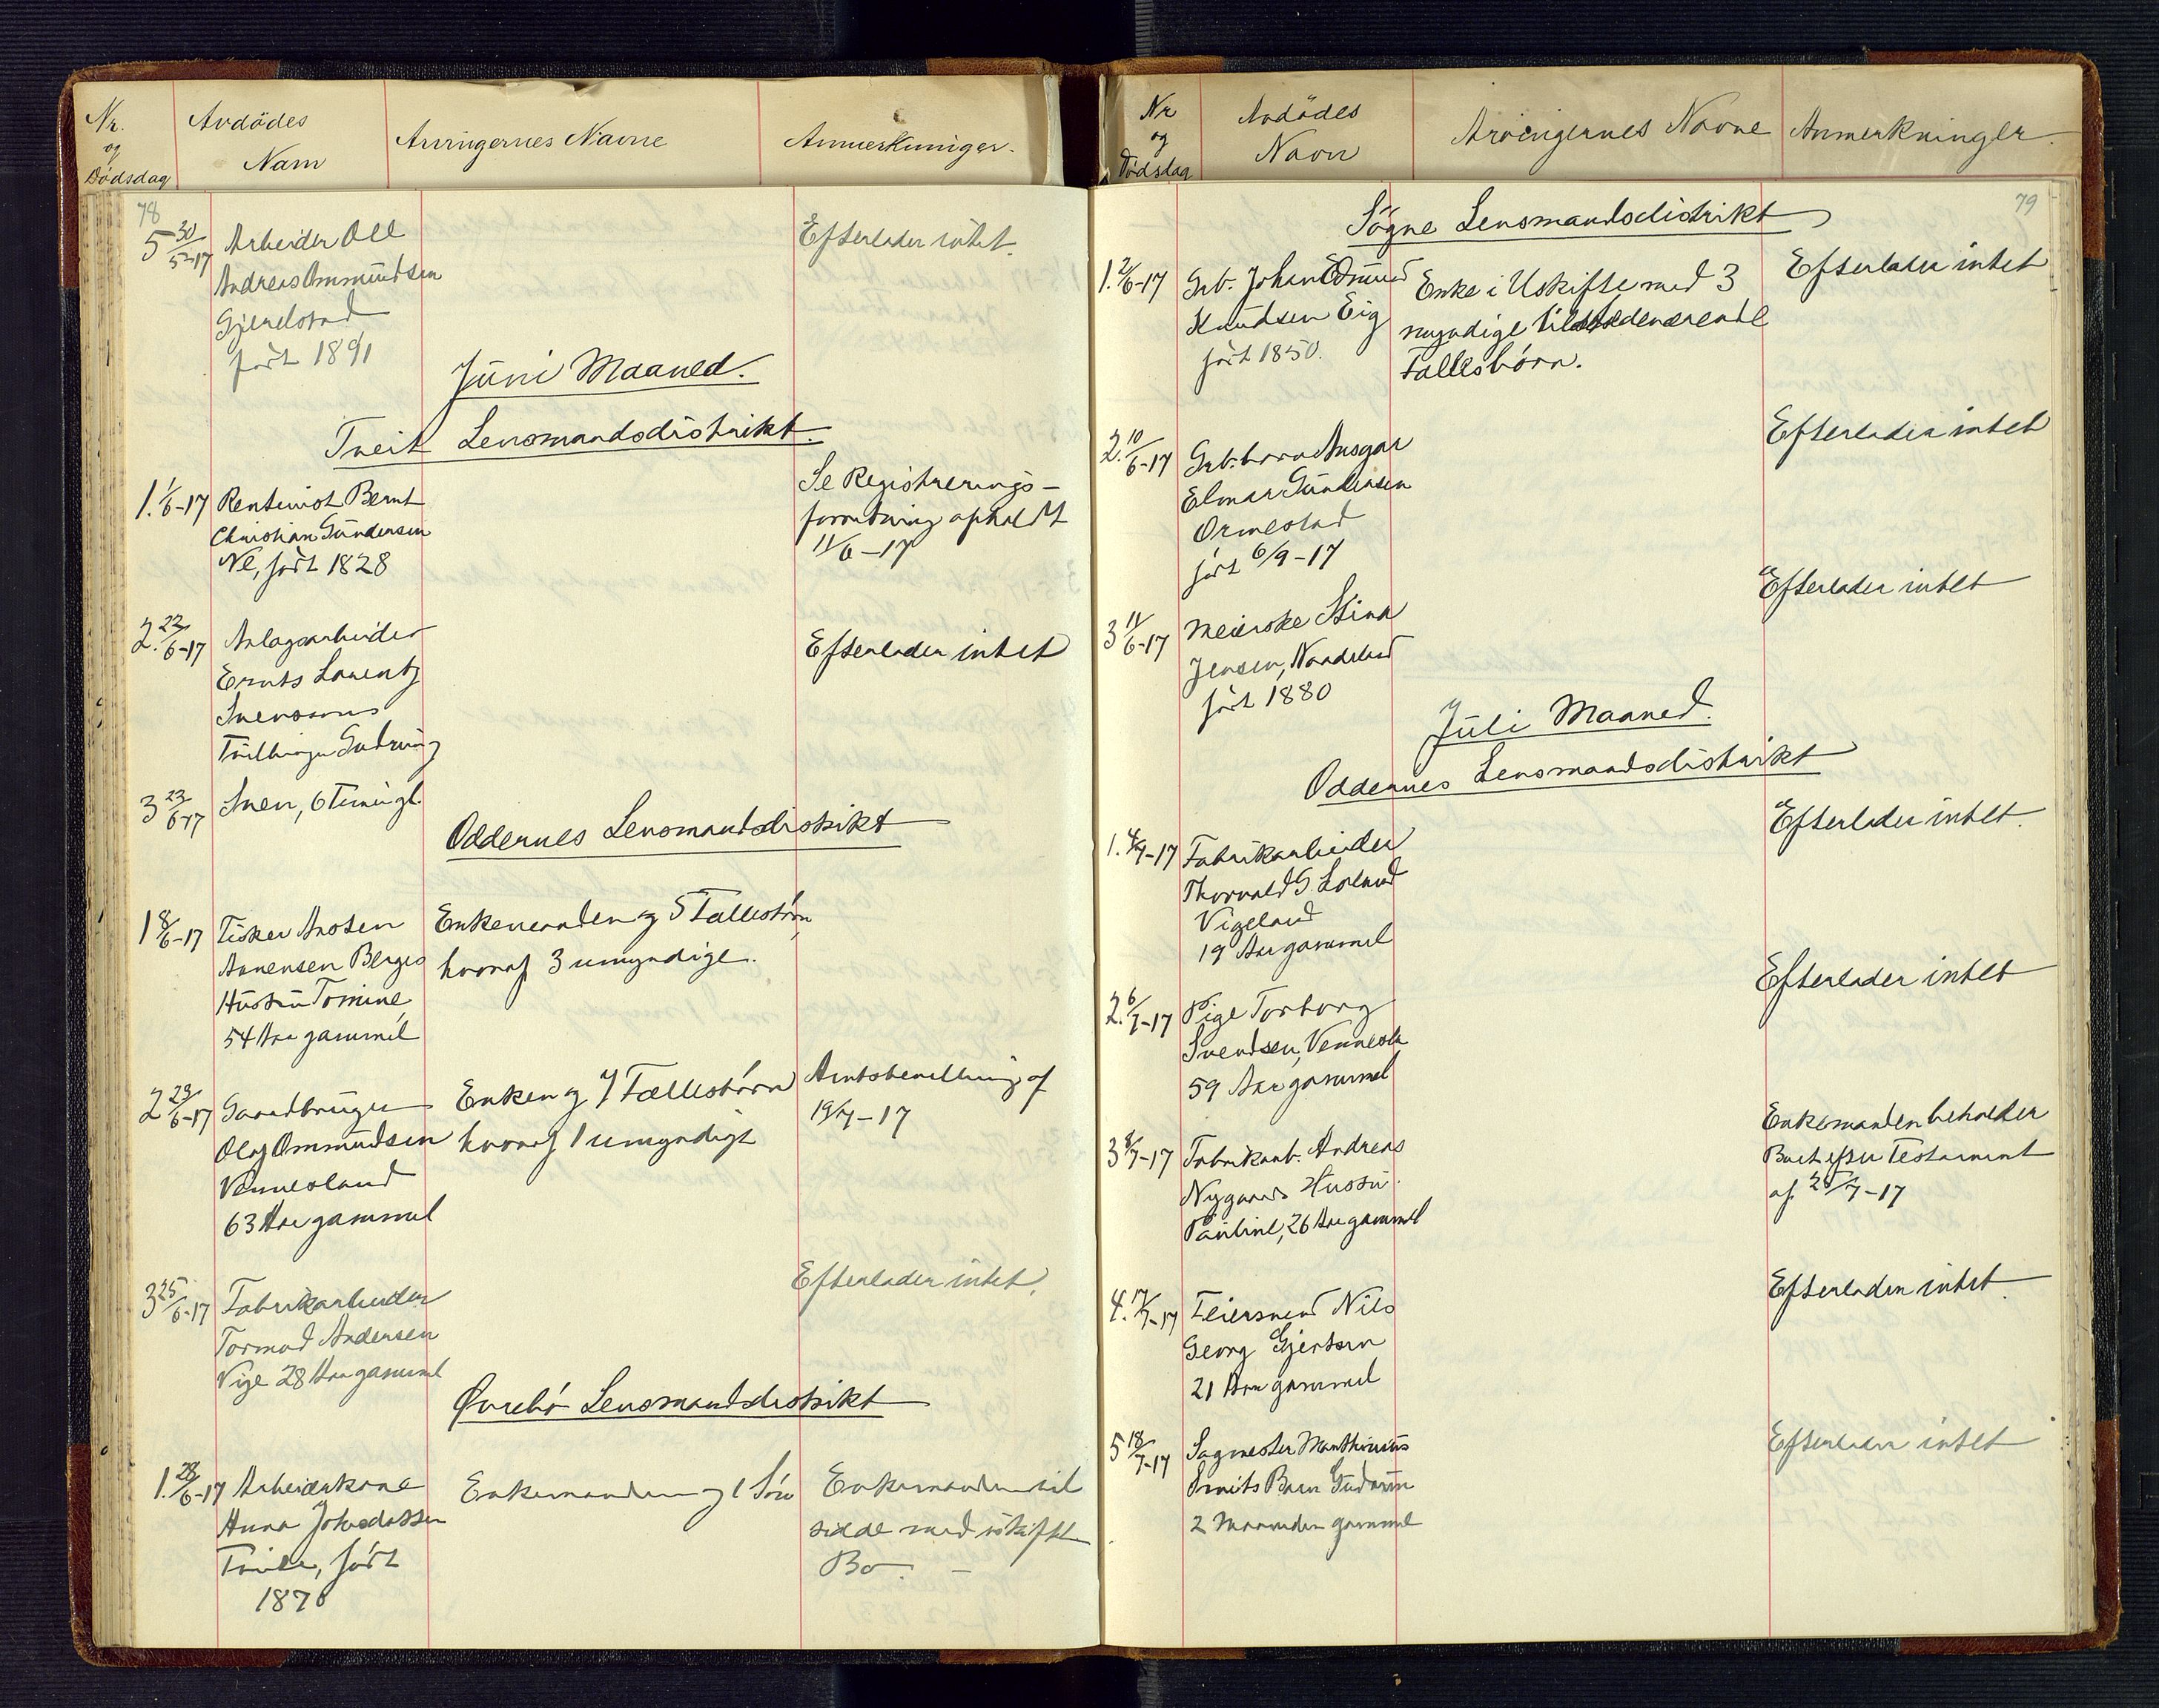 Nr.
og
Dödsdag
Avdödes
Navn
Arvingernes Navne
Anmerkninger.
78
5 30/5-17 Arbeider Ole
Andreas Ommundsen
Gjerelstad
født 1891
Efterlader intet.
Juni Maaned.
Tveit Lensmandsdistrikt.
1. 1/6-17 Rentenist Bernt
Christian Gundersen
Ne, født 1828
Se Registrerings-
forretning apholdt
11/6-17
2. 22/6-17 Anlagsarbeider
Ernts Lorentz
Svensons
Tvillinger Gudrun og
Efterlader intet
3 23/6-17 Sven, 6 Tim gl.
Oddernes Lensmandsdistrikt
1 8/6-17 Fisker Ansten
Annensen Berges
Hustru Tomine,
54 Aar gammel
Enkemanden og 5 Fællesbørn,
hvoraf 3 umyndige.
2 23/6-17 Gaardbruger
Olaf Ommundsen
Vennesland
63 Aar gammel
Enken og 7 Fællesbørn
hvoraf 1 umyndigt
Amtsbevilling af
19/7-17
3 25/6-17 Fabrikarbeider
Tormod Andersen
Vige 28 Aar gammel
Efterlader intet.
Øvrebø Lensmandsdistrikt
1. 28/6-17 Arbeiderkone
Anna Johodatter
født
1870
Enkemanden og 1 Søn
Enkemanden vil
sidde med uskiftet
Bo.
Nr
og
Dödsdag
Avdödes
Navn
Arvingernes Navne
Anmerkninger.
79
Sögne Lensmandsdistrikt
1. 2/6-17 Grb. Johan Edmund
Knudsen Eig
født 1850.
Enke i Uskifte med 3
myndige tilstedeværende
Fællesbørn.
Efterlader intet
2. 10/6-17 Grb. barn Ansgar
Elmar Gundersen
Ormestad
født 6/9-17
Efterlader intet
3 11/6-17 Meierske Stina
Jensen, Nodeland
født 1880
Efterlader intet
Juli Maaned.
Oddernes Lensmandsdistrikt
1. 4/7-17 Fabrikarbeider
Thorvald G. Loland
Vigeland
19 Aar gammel
Efterlader intet.
2. 6/7-17 Pige Torborg
Svendsen, Vennesla
59 Aar gammel
Efterlader intet
3 8/7-17 Fabrikarb. Andreas
Nygaards Hustru
Pauline, 26 Aar gammel
Enkemanden beholder
Boet efter Testament
af 25/7-17
4. 17/7-17 Feiersvend Nils
Georg Gjertsen
21 Aar gammel
Efterladen intet.
5 18/7-17 Sagmester Manthinius
Smits Barn Gudrun
2 Maaneder gammel
Efterlader intet